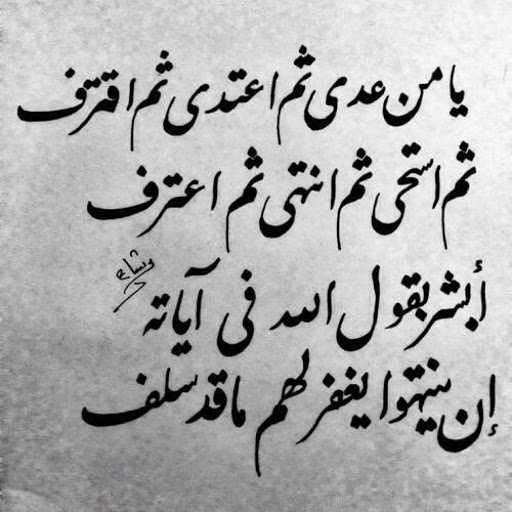 يا من عدى ثم اعتدى ثم اقترف
ثم استحى ثم انتهى ثم اعترف
أبشر بقول الله في آياته
إن ينتهوا يغفر لهم ما قد سلف